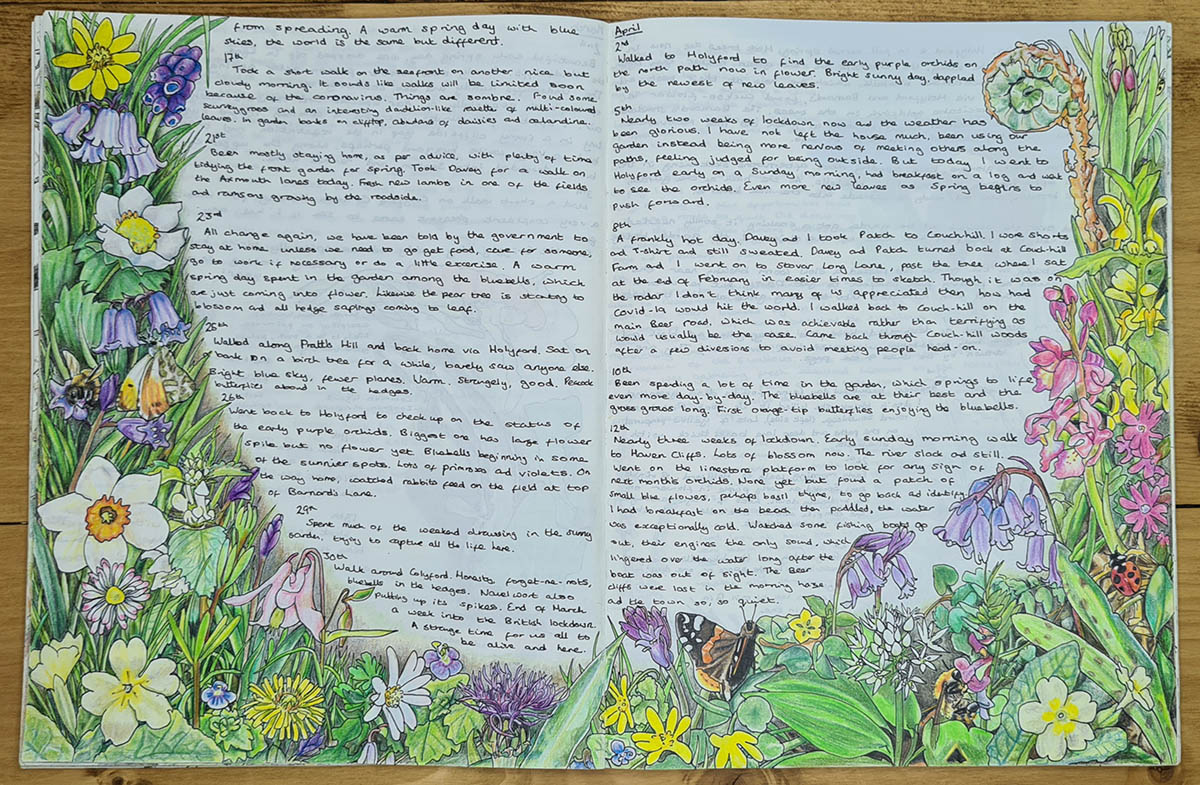 from spreading. A warm spring day with blue
skies, the world is the same but different.
17th
Took a short walk on the seafront on another nice but
cloudy morning. It sounds like walks will be limited soon
because of the coronavirus. Things are sombre. Found some
scurveygrass and an interesting dandelion-like rosette of multi-coloured
leaves. In garden banks on clifftop, abundance of daisies and celandine.
21st
Been mostly staying home, as per advice, with plenty of time
tidying the front garden for spring. Took Davey for a walk on
the Axmouth lanes today. Fresh new lambs in one of the fields
and ramsons growing by the roadside.
23rd
All change again, we have been told by the government to
stay at home unless we need to go get food, care for someone,
go to work if necessary or do a little excercise. A warm
spring day spent in the garden among the bluebells, which
are just coming into flower. Likewise the pear tree is starting to
blossom and all hedge saplings coming to leaf.
25th
Walked along Prattls Hill and back home via Holyford. Sat on
bank on a birch tree for a while, barely saw anyone else.
Bright blue sky, fewer planes. Warm. Strangely, good. Peacock
butterflies abound in the hedges.
26th
Went back to Holyford to check up on the status of
the early purple orchids. Biggest one has large flower
spike but no flower yet. Bluebells beginning in some
of the sunnier spots. Lots of primroses and violets. On
the way home, watched rabbits feed on the field at top
of Barnard's Lane.
29th
Spent much of the weekend drawing in the sunny
garden, trying to capture all the life here.
30th
Walk around Colyford. Honesty, forget-me-nots,
bluebells in the hedges. Navelwort also
putting up its spikes. End of March
a week into the British lockdown.
A strange time for us all to
be alive and here.
April
2nd
Walked to Holyford to find the early purple orchids on
the north path now in flower. Bright sunny day, dappled
by the newest of new leaves.
5th
Nearly two weeks of lockdown now and the weather has
been glorious. I have not left the house much, been using our
garden instead being more nervous of meeting others along the
paths, feeling judged for being outside. But today I went to
Holyford early on a Sunday morning, had breakfast on a log and went
to see the orchids. Even more new leaves as Spring begins to
push forward.
8th
A frankly hot day. Davey and I took Patch to Couchhill. I wore shorts
and T-shirt and still sweated. Davey and Patch turned back at Couch-hill
Farm and I went on to Stovar Long Lane, past the tree where I sat
at the end of February in easier times to sketch. Though it was on
the radar I don't think many of us appreciated then how hard
Covid-19 would hit the world. I walked back to Couch-hill on the
main Beer road, which was achievable rather than terrifying as
would usually be the case. Came back through Couch-hill woods
after a few diversions to avoid meeting people head-on.
10th
Been spending a lot of time in the garden, which springs to life
even more day-by-day. The bluebells are at their best and the
grass grows long. First orange-tip butterflies enjoying the bluebells.
12th
Nearly three weeks of lockdown. Early Sunday morning walk
to Haven Cliffs. Lots of blossom now. The river slack and still.
Went on the limestone platform to look for any sign of
next month's orchids. None yet but found a patch of
small blue flowers, perhaps basil thyme, to go back and identify.
I had breakfast on the beach then paddled, the water
was exceptionally cold. Watched some fishing boats go
out, their engines the only sound, which
lingered over the water long after the
boat was out of sight. The Beer
cliffs were lost in the morning haze
and the town so, so quiet.